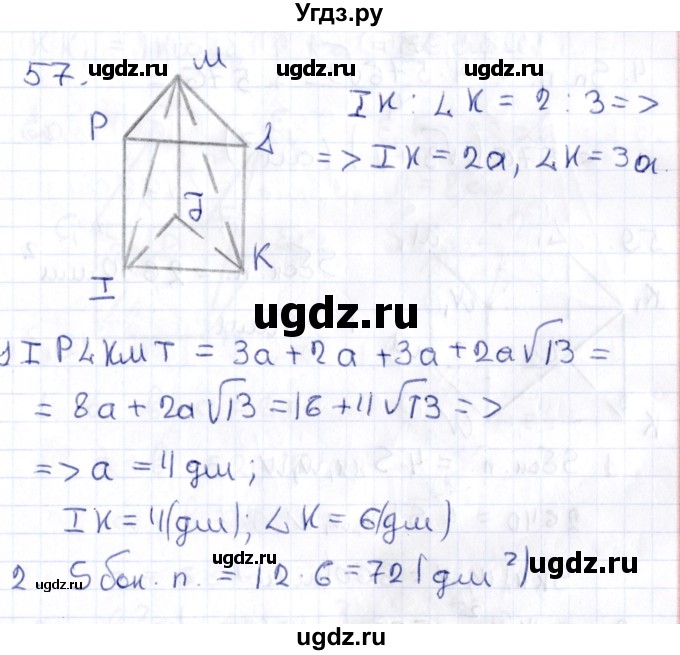 Угдз.ру
57.
M
P
L
J
I
K
IK : LK = 2 : 3 =>
=> IK = 2a, LK = 3a.
ugdz.ru ugdz.ru ugdz.ru
ugdz.ru
1 I PLKMT = 3a + 2a + 3a + 2a√13 =
= 8a + 2a√13 = 16 + 4√13 =>
=> a = 4 дм;
ugdz.ru ugdz.ru ugdz.ru
IK = 4(дм); LK = 6(дм)
2 Sбок. п. = 12 · 6 = 72 (дм²)
ugdz.ru ugdz.ru ugdz.ru
ugdz.ru